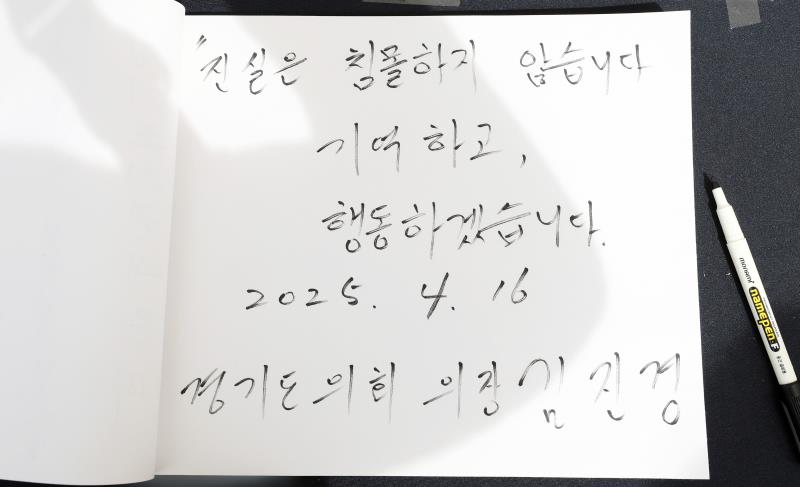 "진실은 침몰하지 않습니다
기억하고,
행동하겠습니다.
2025. 4. 16
경기도의회 의장 김진경
monami
namepen F